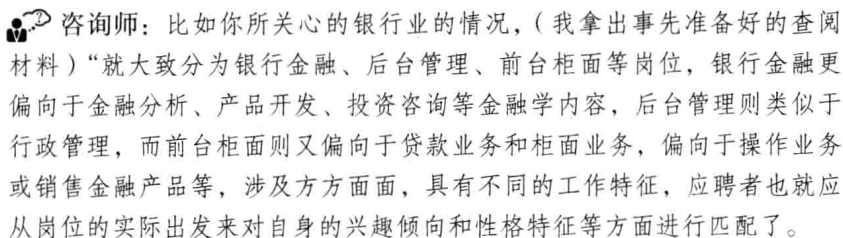 咨询师：比如你所关心的银行业的情况，（我拿出事先准备好的查阅
材料）“就大致分为银行金融、后台管理、前台柜面等岗位，银行金融更
偏向于金融分析、产品开发、投资咨询等金融学内容，后台管理则类似于
行政管理，而前台柜面则又偏向于贷款业务和柜面业务，偏向于操作业务
或销售金融产品等，涉及方方面面，具有不同的工作特征，应聘者也就应
从岗位的实际出发来对自身的兴趣倾向和性格特征等方面进行匹配了。